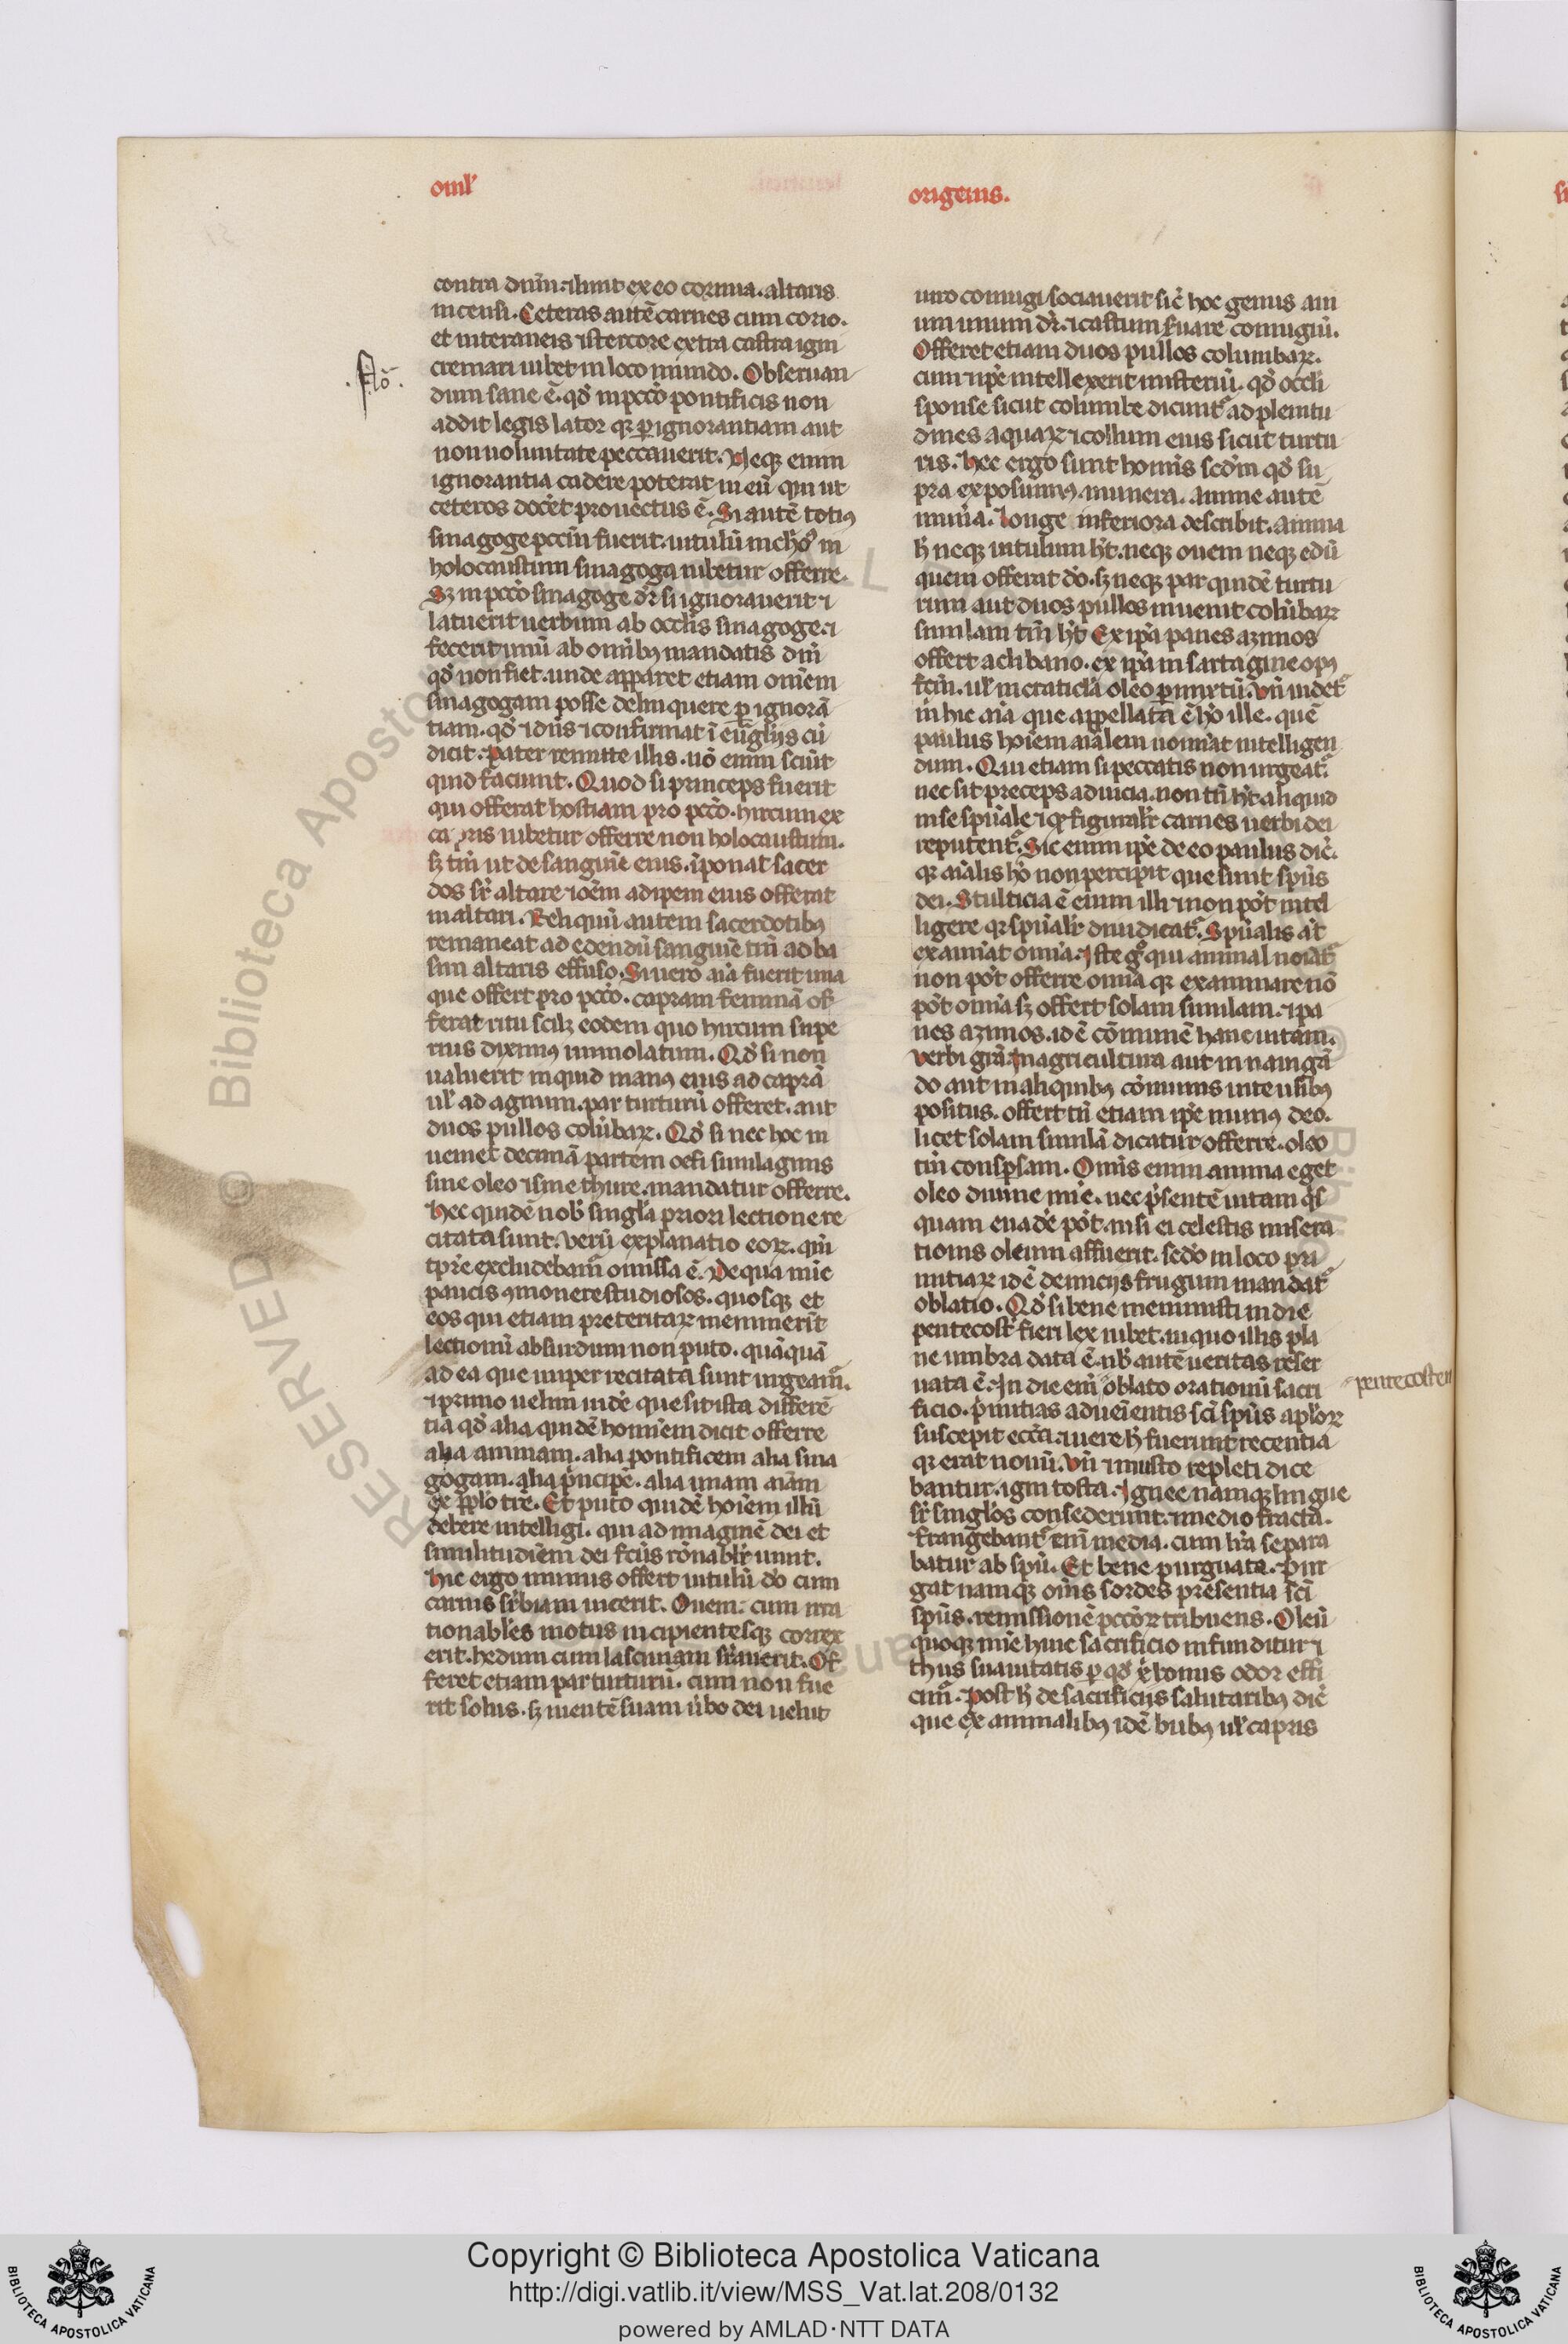 oml'
origenis.
contra dnm̅. ⁊ linit ex eo cornua. altaris
incensi. Ceteras autē carnes cum corio.
et interaneis ⁊ stercore extra castra igni
cremari iubet in loco mundo. Obseruan
dum sane ē. qd̓ in pccō pontificis non
addit legis lator qꝫ ꝑ ignorantiam aut
non uoluntate peccauerit. Neqꝫ enim
ignorantia cadere poterat in eū qui ut
ceteros docet prouectus ē. Si autē totiꝰ
sinagoge pccm̅ fuerit. uitulū
holocaustum sinagoga iubetur offerre.
Sꝫ in pccō sinagoge dr̅ si ignorauerit ⁊
latuerit uerbum ab occlis sinagoge. ⁊
fecerit unū ab omibꝰ mandatis dnī
qd̓ non fiet. unde apparet etiam omēm
sinagogam posse delinquere ꝑ ignorā
tiam. qd̓ ⁊ dn̄s ⁊ confirmat ī eūglijs cū
dicit. Pater remitte illis. nō enim sciūt
quid faciunt. Quod si princeps fuerit
qui offerat hostiam pro pccō. hircum ex
capris iubetur offerre non holocaustum.
sꝫ tm̅ ut de sanguīe eius. īponat sacer
dos sr̅ altare ⁊ oēm adipem eius offerat
in altari. Reliquū autem sacerdotibꝰ
remaneat ad edendū sanguīe tm̅ ad ba
sim altaris effuso. Si uero aīa fuerit una
que offert pro pccō. capram feminā of
ferat ritu scilꝫ eodem quo hircum supe
rius diximꝰ immolatum. Qd̓ si non
ualuerit inquid manꝰ eius ad caprā
ul̓ ad agnum. par turturū offeret. aut
duos pullos colūbaꝝ. Qd̓ si nec hoc in
ueniet decimā partem oefi similaginis
sine oleo ⁊ sine thure. mandatur offerre.
Hec quidē nob̓ singl̓a priori lectione re
citata sunt. Verū explanatio eoꝝ. qm̅
tp̅re excludebam᷑ omissa ē. De qua mīc
paucis ꝯmonere studiosos. quosqꝫ et
eos qui etiam preteritaꝝ meminerīt
lectionū absurdum non puto. quāquā
ad ea que nuper recitata sunt urgeam᷑.
⁊ primo uelim uide que sit ista differē
tia qd̓ alia quidē hominem dicit offerre
alia animam. alia pontificem alia sina
gogam. alia pncipē. alia unam aīam
de pplo trē. Et puto quidē hoīem illū
debere intelligi. qui ad imaginē dei et
similitudīem dei fc̄us rōnabl'r uiuit.
Hic ergo munus offert uitulū dō cum
carnis suꝑbiam uicerit. Ouem. cum irra
tionabl̓es motus incipientesqꝫ correx
erit. hedum cum lasciuiam suꝑauerit. Of
feret etiam par turturū. cum non fue
rit solus. sꝫ mentē suam ūbo dei uelut
uiro coniugi sociauerit sic̄ hoc genus aui
um unum dr̅. ⁊ castum ẜuare coniugiū.
Offeret etiam duos pullos columbaꝝ.
cum ⁊ ipē intellexerit misteriū. qd̓ occli
sponse sicut columbe dicunt᷑ ad plenitu
dines aquaꝝ ⁊ collum eius sicut turtu
ris. Hec ergo sunt homīs scdm̅ qd̓ su
pra exposuimꝰ. munera. anime autē
munera. longe inferiora describit. anima
h̓ neqꝫ uitulum hꝫ. neqꝫ ouem neqꝫ edū
quem offerat dō. sꝫ neqꝫ par quidē turtu
rum aut duos pullos inuenit colūbaꝝ
similam tm̅ hꝫ. Ex ipā panes azimos
offert a clibano. ex ipā in sartagine opꝰ
fcm̅. ul̓ in craticla oleo ꝑmixtū. Vn̅ uidet᷑
m̅ hic aīa que appellata ē hō ille. quē
paulus hoīem aīalem nomīat intelligen
dum. Qui etiam si peccatis non urgeat᷑.
nec sit preceps ad uicia. non tn̅ hꝫ aliquid
in se spūale ⁊ qd̓ figural'r carnes uerbi dei
reputent᷑. Sic enim ipē de eo paulus dic̄.
qꝫ aīalis hō non percipit que sunt spūs
dei. Stulticia ē enim illi ⁊ non pōt intel
ligere qꝫ spūal'r diiudicat᷑. Spūalis aūt
examīat omīa. Iste gͦ qui animal noīat᷑
non pōt offerre omīa qꝫ examinare nō
pōt omīa sꝫ offert solam similam. ⁊ pa
nes azimos. idē cōmunē hanc uitam.
Verbi grā. in agricultura aut in nauigā
do aut in aliquibꝰ cōmunis uite usibꝰ
positus. offert tn̅ etiam ipē munꝰ deo.
licet solam similā dicatur offerre. oleo
tm̅ conspsam. Omīs enim anima eget
oleo diuine mīe. nec psentē uitam qͥs
quam euadē pōt. nisi ei celestis misera
tionis oleum affuerit. scdō in loco pri
mitiaꝝ idē deinicijs frugum mandat᷑
oblatio. Qd̓ si bene meministi in die
pentecost̓ fieri lex iubet. in quo illis pla
ne umbra data ē. nb̓ autē ueritas reser
uata ē. In die em̅ oblato orationū sacri
ficio. pmitias adueientis scī spūs aploꝝ
suscepit eccl̓a. ⁊ uere h̓ fuerunt recentia
qꝫ erat nouū. Vn̅ ⁊ musto repleti dice
bantur. igni tosta. Ignee namqꝫ lingue
sr̅ singl̓os consederunt. ⁊ medio fracta.
frangebant᷑ em̅ media. cum l̓ra separa
batur ab spū. Et bene purguata. Pur
gat namqꝫ om̅s sordes presentia scī
spūs. remissionē pccōꝝ tribuens. Oleū
quoqꝫ mīe huic sacrificio infunditur ⁊
thus suauitatis ꝑ qd̓ xp̅i bonus odor effi
cim᷑. Post h̓ de sacrificijs salutaribꝰ dic̄
que ex animalibꝰ idē bubꝰ ul̓ capris
pentecosten
Copyright © Biblioteca Apostolica Vaticana
http://digi.vatlib.it/view/MSS_Vat.lat.208/0132
powered by AMLAD·NTT DATA
BIBLIOTECA APOSTOLICA VATICANA
BIBLIOTECA APOSTOLICA VATICANA